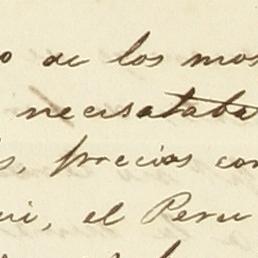 o de los mos
necesataba
s, precios con
ui, el Peru